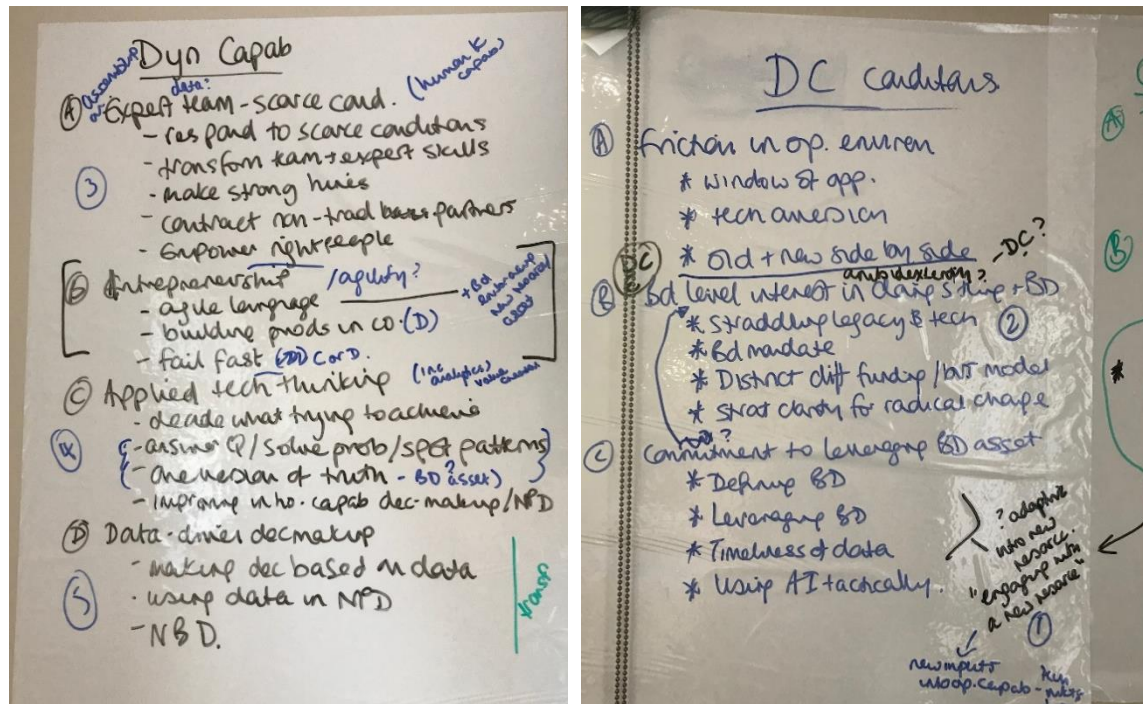 Dyn Capab
data:
(human k
capab)
A Expert team - scarce cond.
- respond to scarce conditions
- transform team + expert skills
3
- make strong hires
- contract non-trad partners
- Empower right people
B Entrepreneurship /agility?
- agile language
- building prods in co. (D)
- fail fast C or D.
+ Bd
embracing
new resource
asset
C Applied tech thinking
(inc
analytics)
value
creation
- decide what trying to achieve
4
- answer Q/solve prob/spot patterns
- one version of truth - BD asset?
- improving in ho. capab dec-making/NPD
D Data-driven decmaking
- making dec based on data
5
- using data in NPD
- NBD.
transn
DC conditions
A friction in op. environ
* window of opp.
* tech aversion
* old + new side by side
- DC?
ambidexterity?
DC
B Bd level interest in doing s'thing + BD
* Straddling legacy & tech
2
* Bd mandate
* Distinct diff funding/bus model
* Strat clarity for radical change
?
C Commitment to leveraging BD asset
* Defining BD
* Leveraging BD
* Timeliness of data
* Using AI tactically.
? adaptive
into new
resource.
"engaging with
a new resource"
1
new inputs
into op. capab -
A
B
*